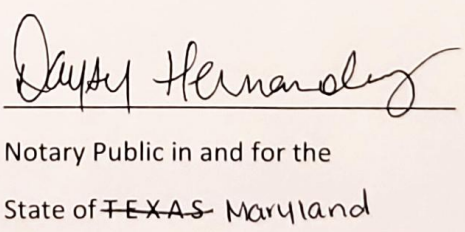 Daysy Hernandez
Notary Public in and for the
State of TEXAS Maryland